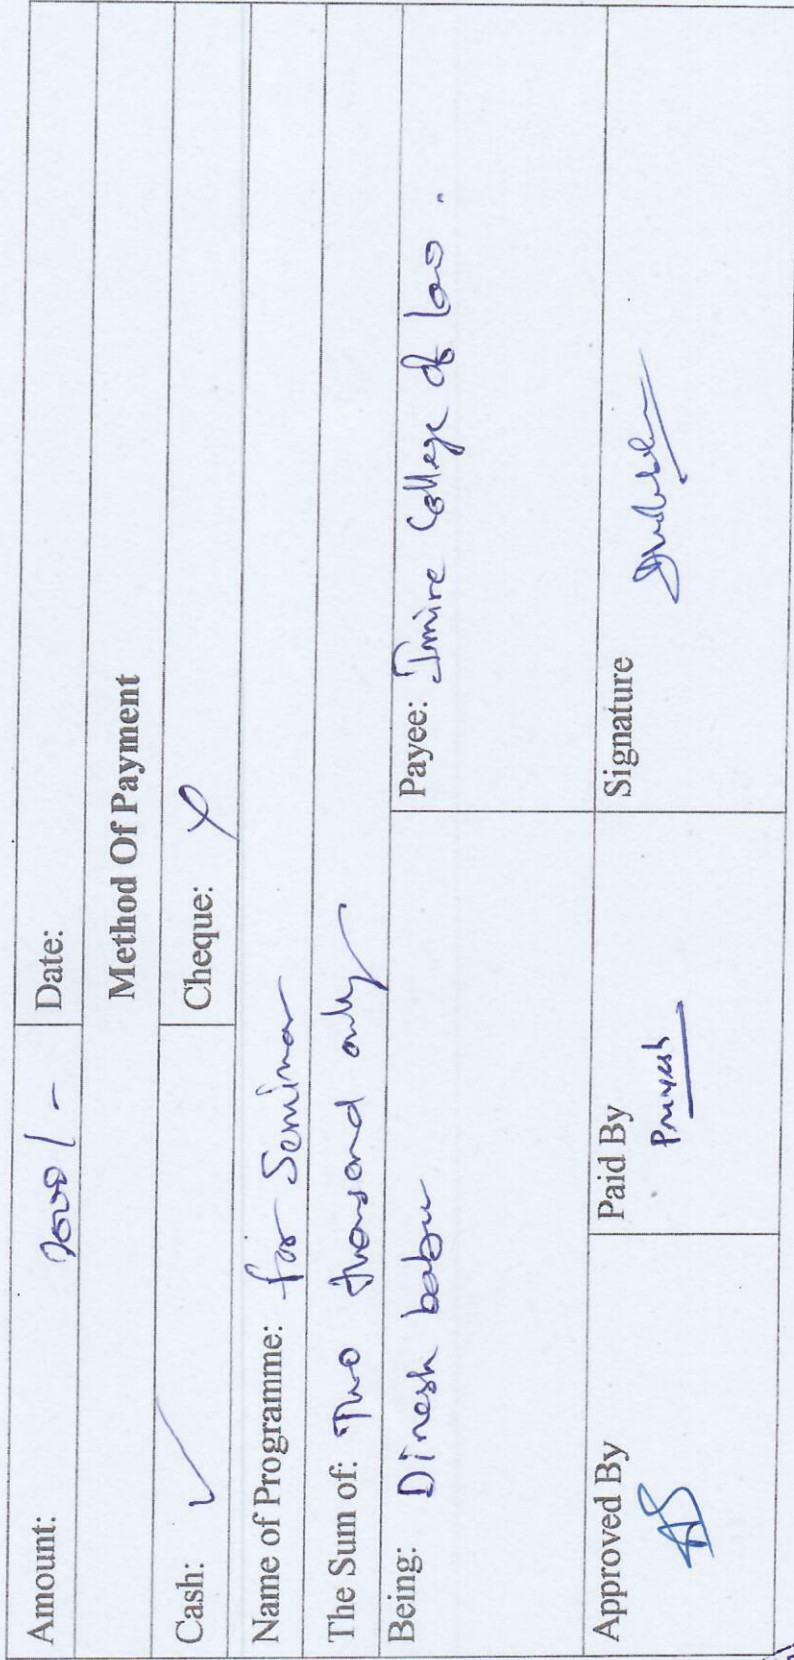 Amount: 2000/- Date:
Method Of Payment
Cash: ✓ Cheque: x
Name of Programme: for Seminar
The Sum of: Two thousand only
Being: Dinesh babu Payee: College of law.
Approved By Paid By Signature